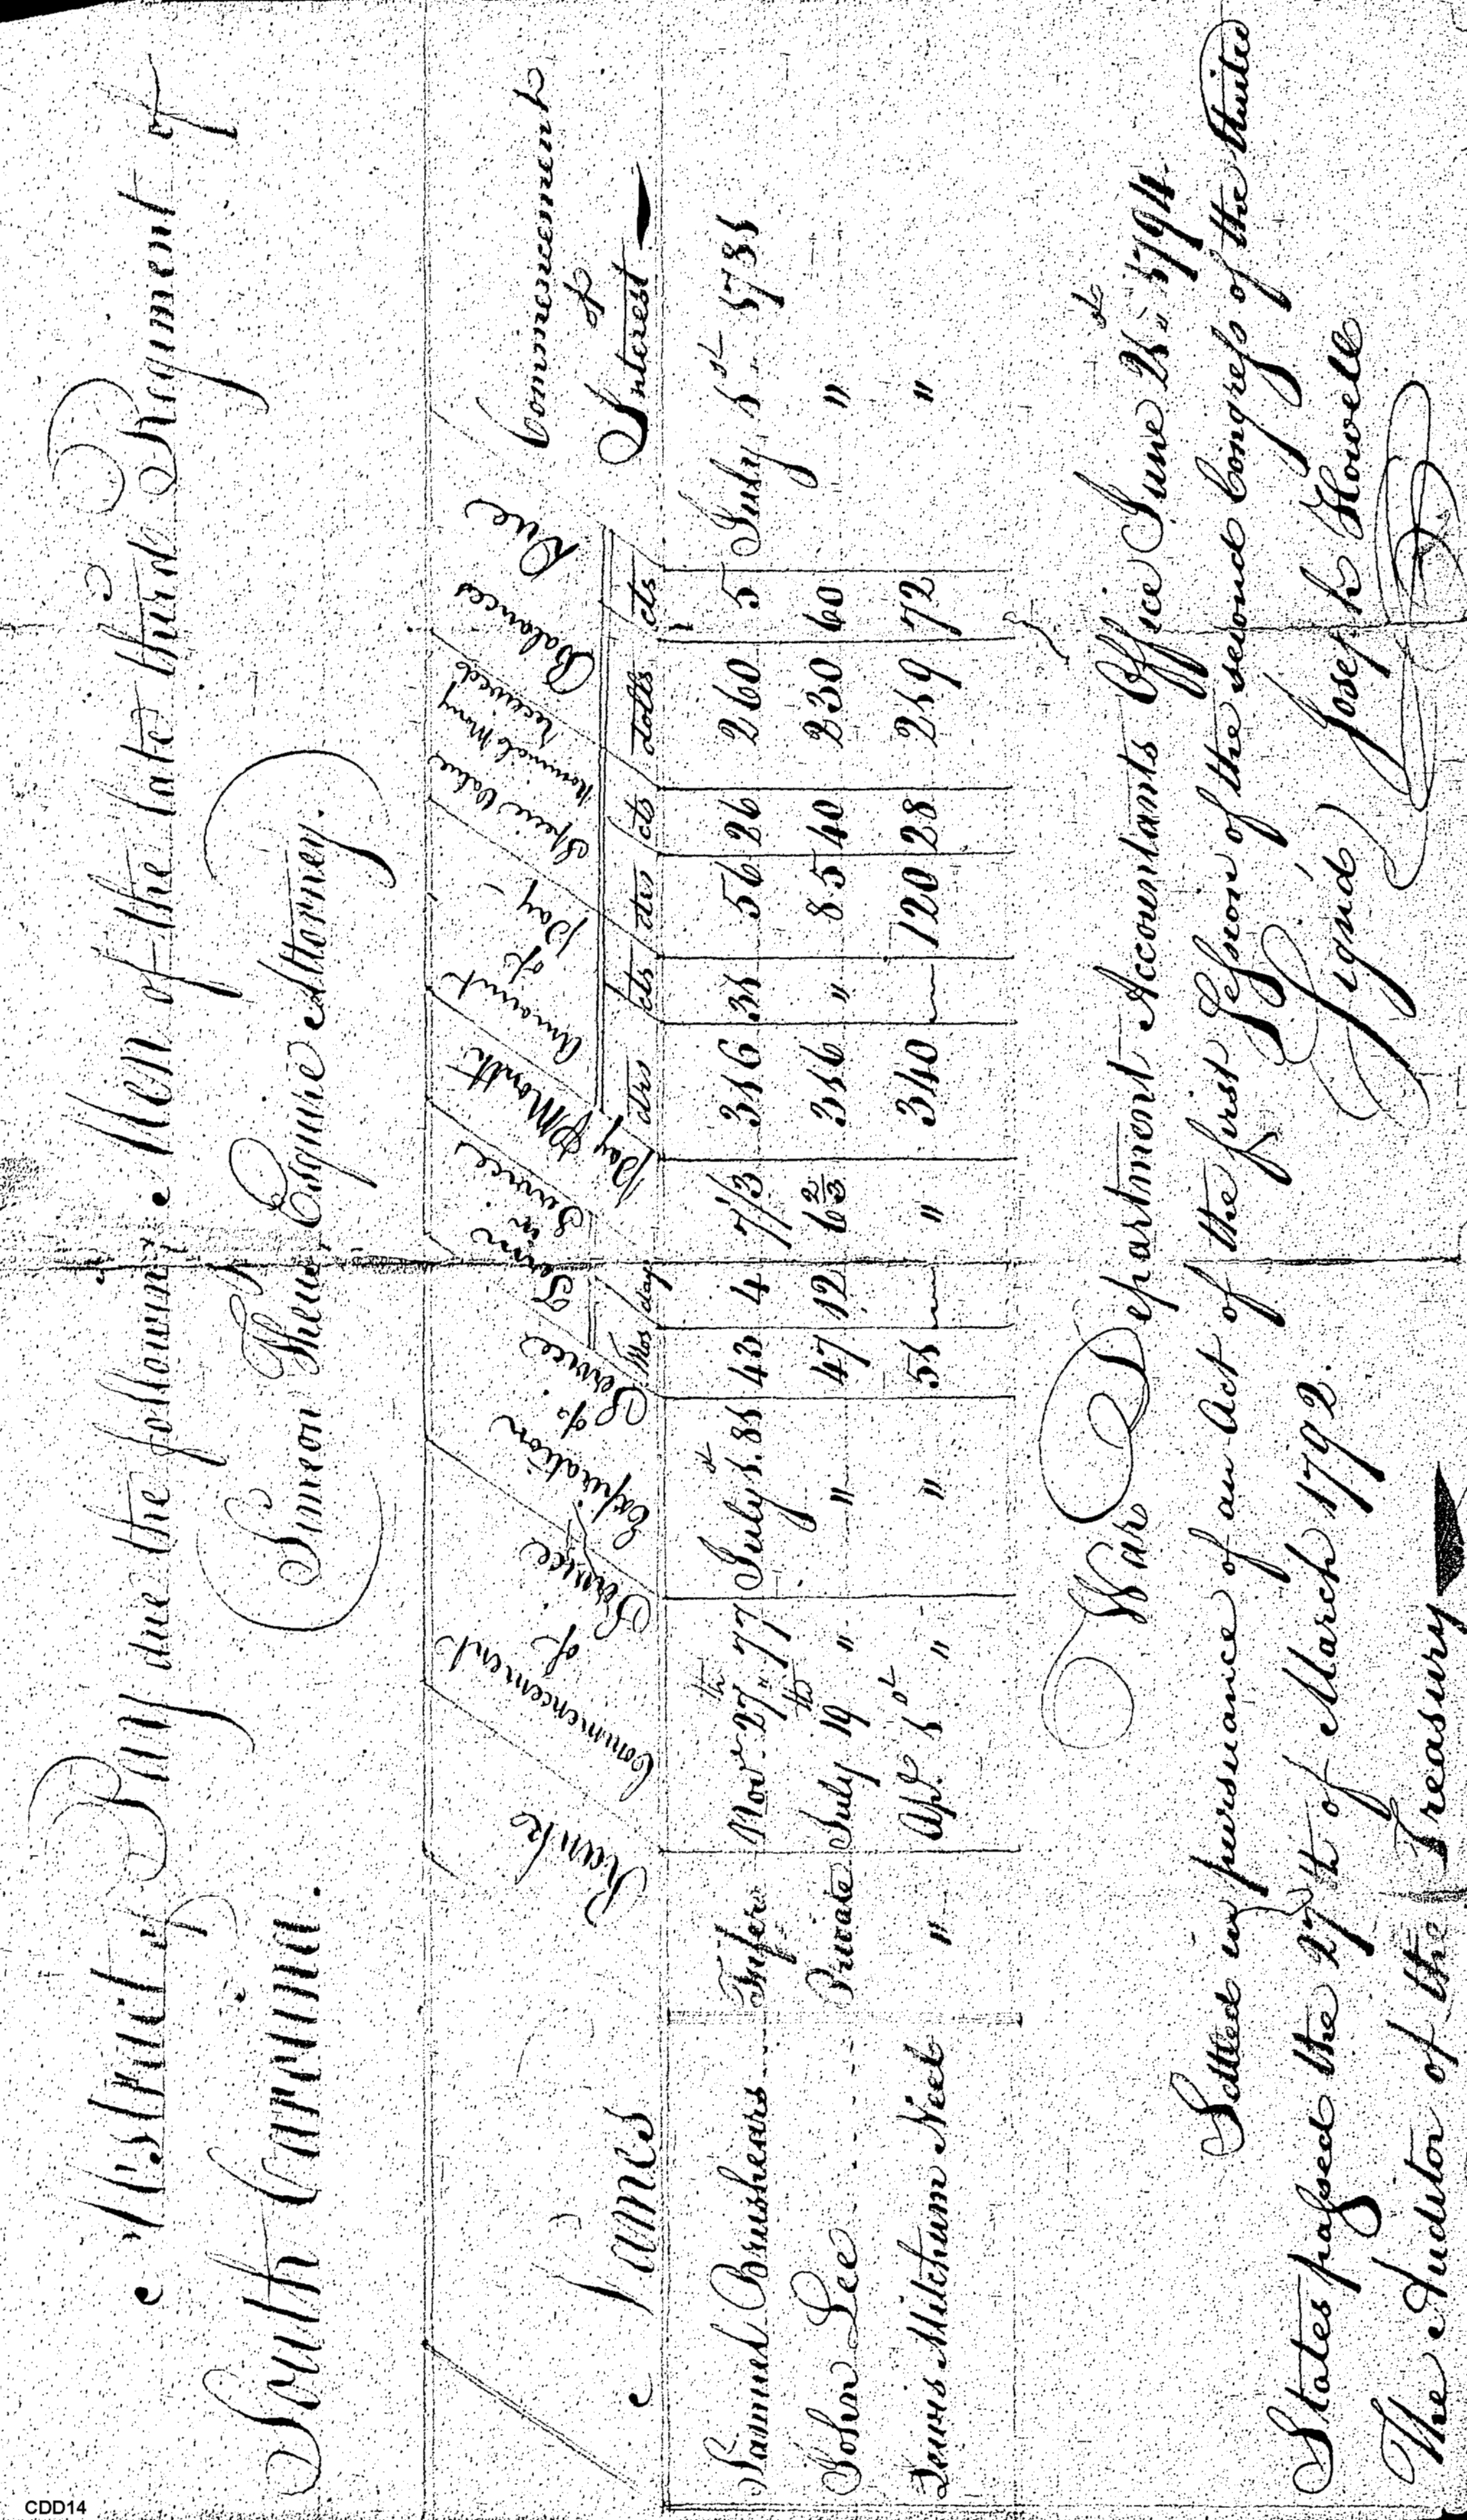 Abstract of Pay due the following Men of the late third Regiment of
South Carolina. Simeon Theus, Esquire Attorney.
Names Rank Commencement of Service Expiration of Service Term in Service Pay P Month Amount of Pay Specie Value Nominal Mony received Balances Due Commencement of Interest
Mos days drs cts drs cts dolls cts
Samuel Brushears Fifer Novr 27th 77 July 1st 81 43 4 7 1/3 316 31 56 26 260 5 July 1st 1781
John Lee Private July 19th " " 47 12 6 2/3 316 " 85 40 230 60 "
Lewis Mitchum " Apl. 1st " " 51 — " 340 — 120 28 219 72 "
War Department Accountants Office June 21st 1794.
Settled in pursuance of an Act of the first Session of the second Congress of the United
States passed the 27th of March 1792.
(Signd) Joseph Howell
The Auditor of the Treasury
CDD14